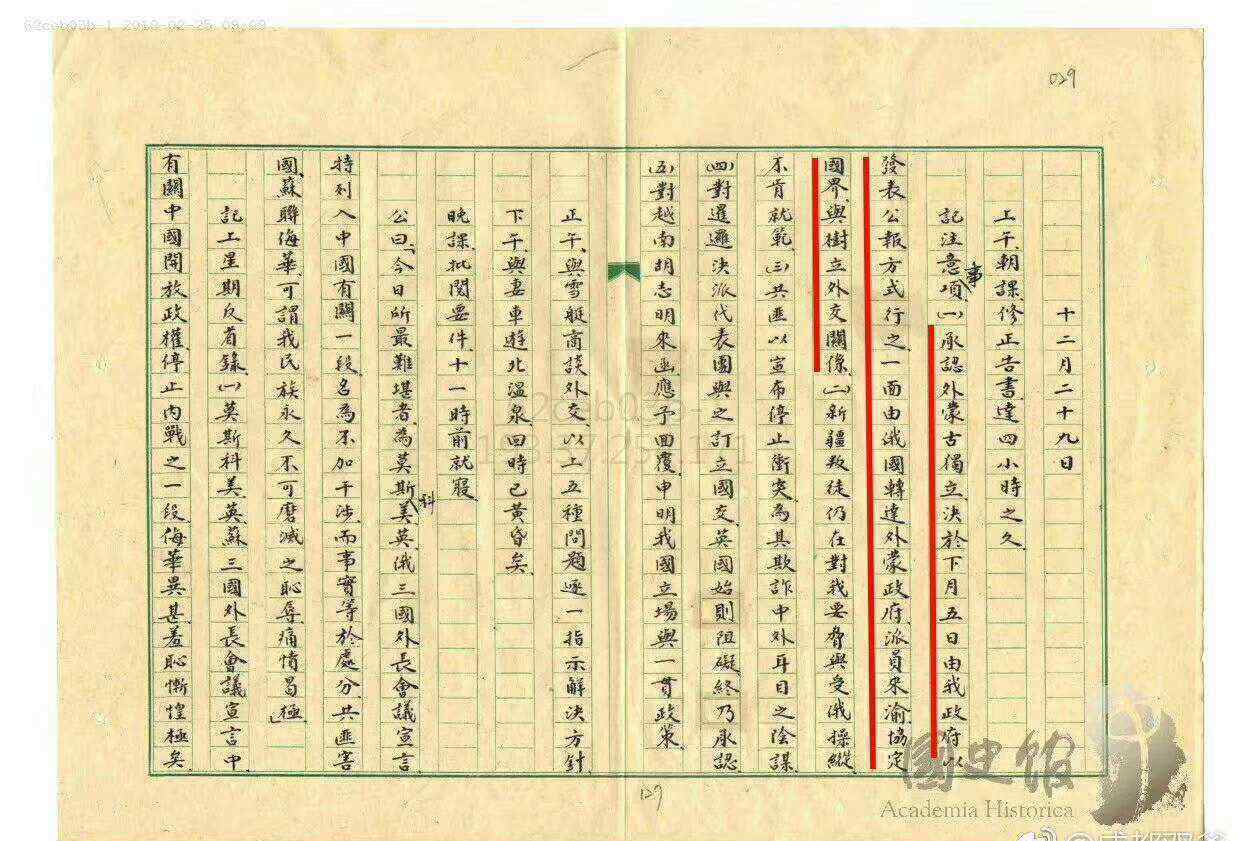 029
十二月二十九日
上午、朝課、修正告書、達四小時之久、
記注意事項、㈠承認外蒙古獨立、決於下月五日由我政府以
發表公報方式行之、一面由俄國轉達外蒙政府、派員來渝協定
國界、與樹立外交關係、㈡新疆叛徒仍在對我要脅、與受俄操縱、
不肯就範、㈢共匪以宣布停止衝突、為其欺詐中外耳目之陰謀、
㈣對暹邏決派代表團與之訂立國交、英國始則阻礙、終乃承認、
㈤對越南胡志明來函、應予回覆、申明我國立場與一貫政策、
正午、與雪艇商談外交、以上五種問題、逐一指示解決方針、
下午、與妻車遊北溫泉、回時已黃昏矣、
晚課、批閱要件、十一時前就寢、
公曰、「今日所最難堪者、為莫斯科美英俄三國外長會議宣言、
特列入中國有關一段、名為不加干涉、而事實等於處分共匪害
國、蘇聯侮華、可謂我民族永久不可磨滅之恥辱、痛憤曷極」、
記上星期反省錄、㈠莫斯科美英蘇三國外長會議宣言中、
有關中國開放政權、停止內戰之一段、侮華異甚、羞恥慚惶極矣、
127
國史館
Academia Historica